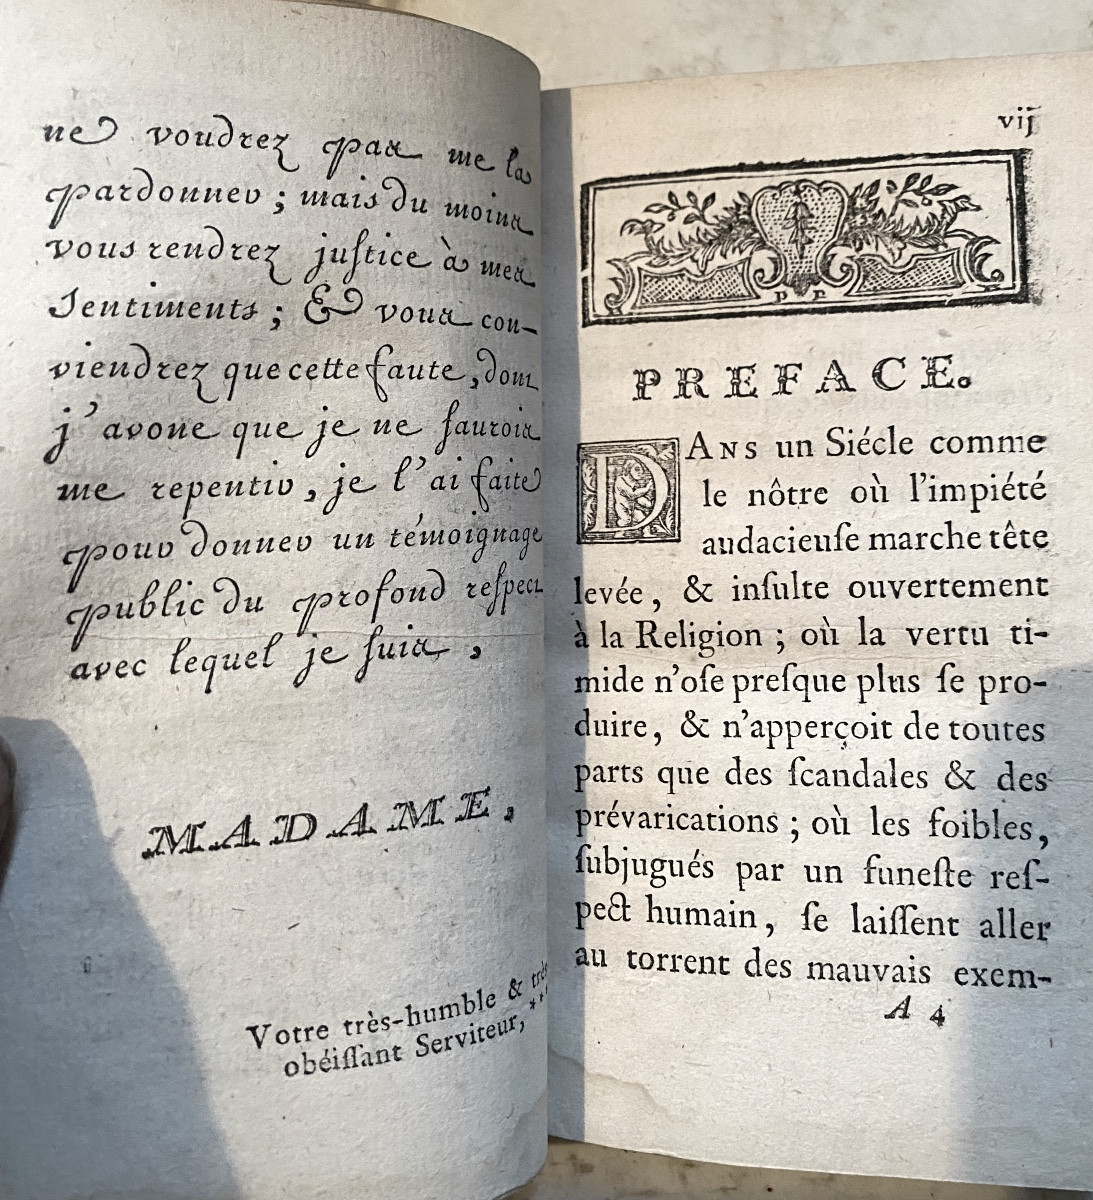 ne voudrez pas me la
pardonner ; mais du moins
vous rendrez juſtice à mes
Sentiments ; & vous con-
viendrez que cette faute, dont
j'avoue que je ne ſaurois
me repentir, je l'ai faite
pour donner un témoignage
public du profond reſpect
avec lequel je ſuis ,
MADAME,
Votre très-humble & très
obéiſſant Serviteur, ***
vij
P P
PREFACE.
DANS un Siécle comme
le nôtre où l'impiété
audacieuſe marche tête
levée, & inſulte ouvertement
à la Religion ; où la vertu ti-
mide n'oſe preſque plus ſe pro-
duire, & n'apperçoit de toutes
parts que des ſcandales & des
prévarications ; où les foibles,
ſubjugués par un funeſte reſ-
pect humain, ſe laiſſent aller
au torrent des mauvais exem-
A 4